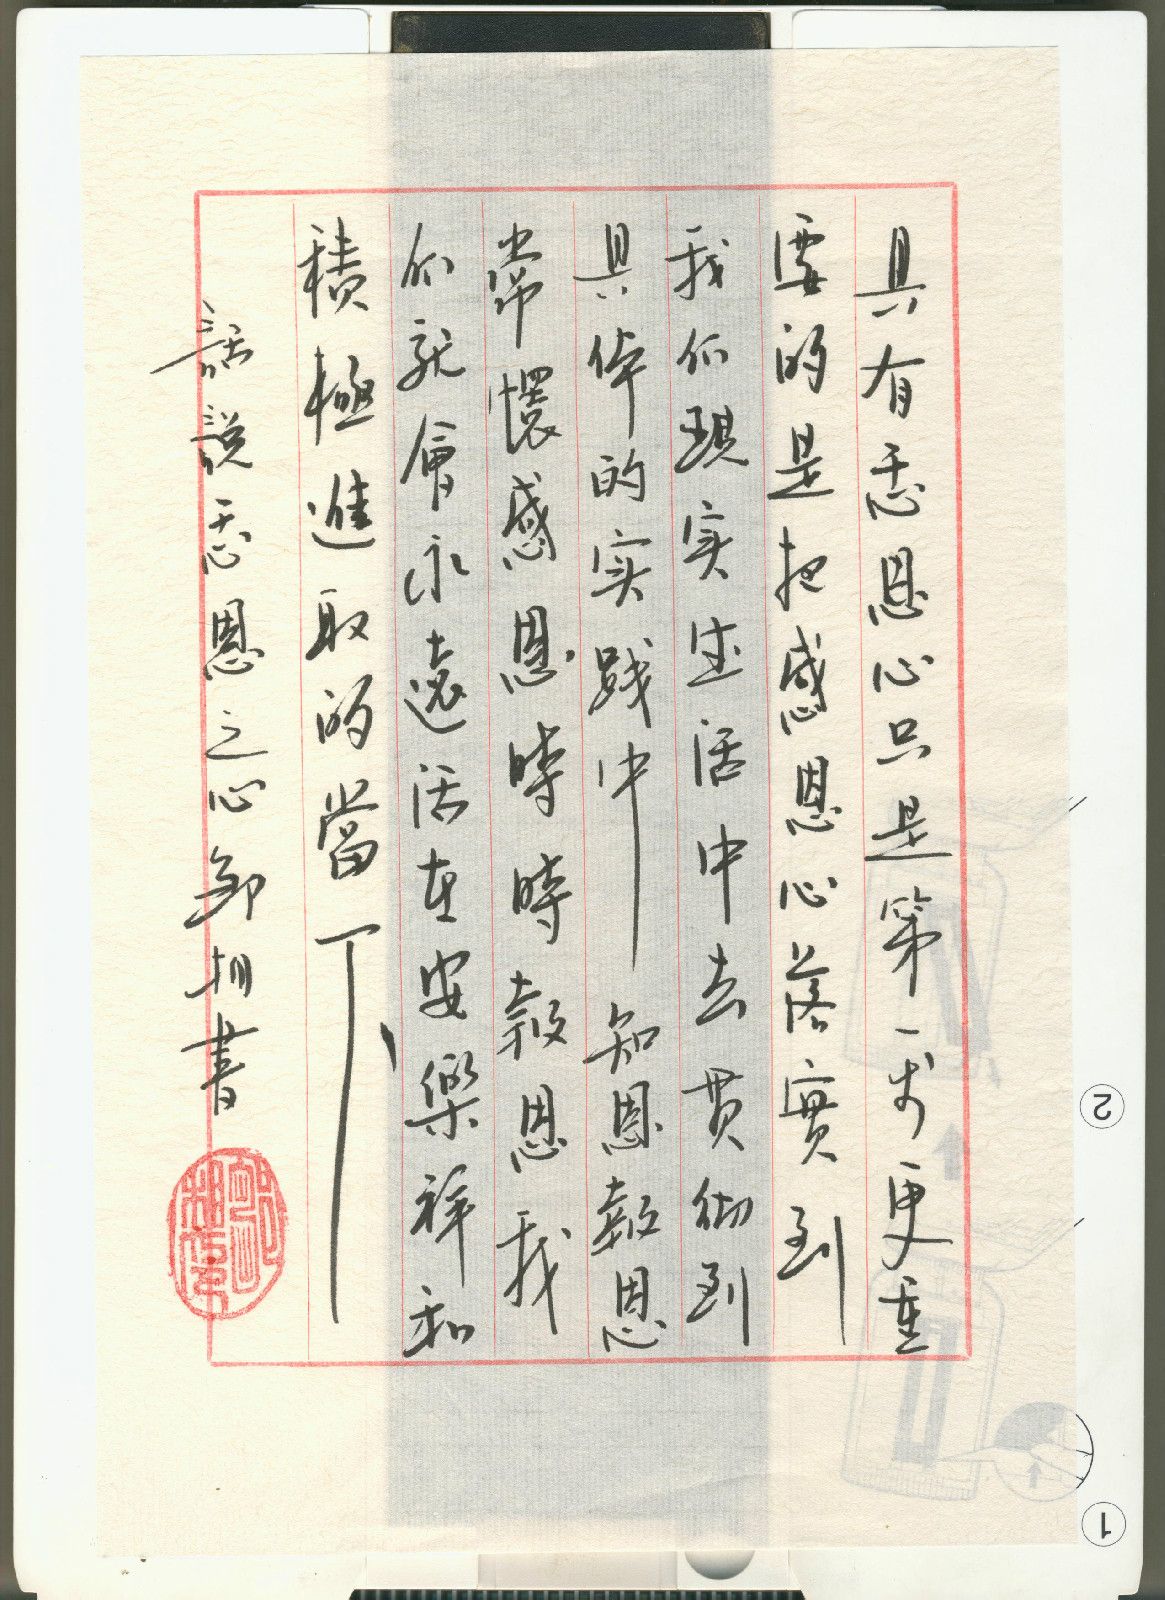 具有感恩心只是第一步更重
要的是把感恩心落實到
我们现实生活中去贯彻到
具体的实践中 知恩報恩
常懷感恩時時報恩我
们就會永遠活在安樂祥和
積極進取的當下
話說感恩之心 邹相書
2
1